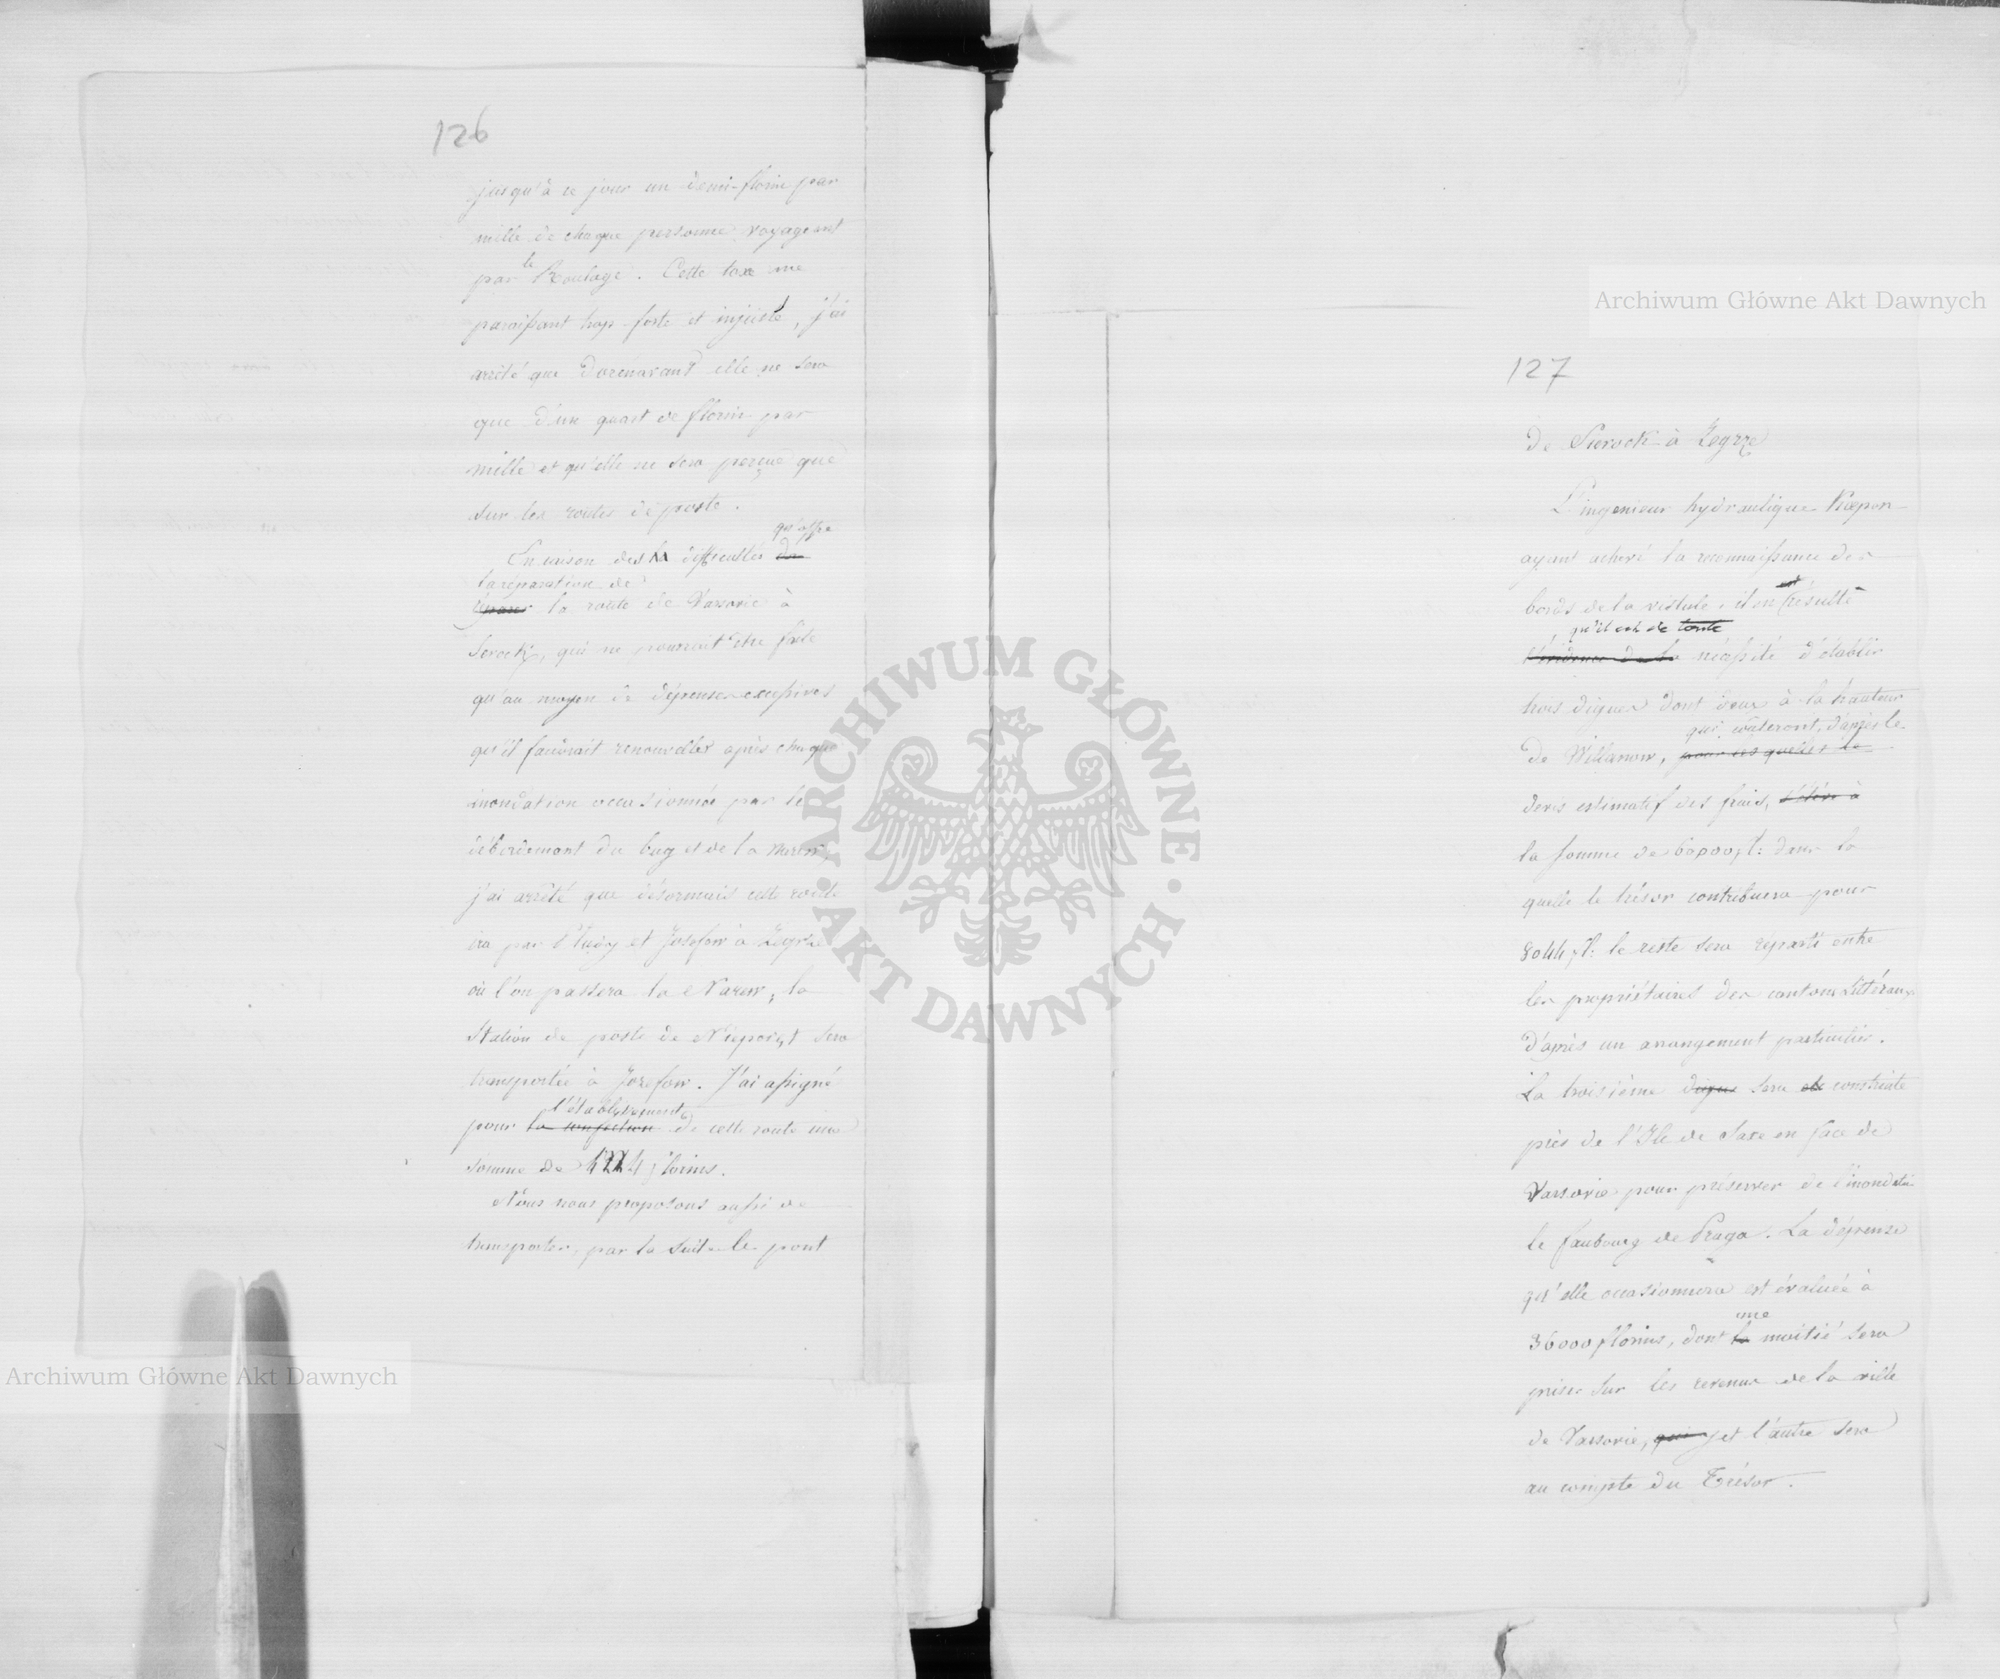 126
jusqu'à ce jour un demi-florin par
mille de chaque personne voyageant
par le Roulage. Cette taxe me
paraissant trop forte et injuste, j'ai
arrêté que dorénavant elle ne sera
que d'un quart de florin par
mille et qu'elle ne sera perçue que
sur les routes de poste.
qu'offre
En raison des difficultés de
la réparation de
réparer la route de Varsovie à
Serock, qui ne pourrait être faite
qu'au moyen de dépenses excessives
qu'il faudrait renouveller après chaque
inondation occasionnée par le
débordement du bug et de la Narew,
j'ai arrêté que désormais cette route
ira par et Josefow à Zegrze
où l'on passera la Narew, la
Station de poste de Nieporent sera
transportée à Jozefow. J'ai assigné
l'établissement
pour la confection de cette route une
somme de florins.
Nous nous proposons aussi de
transporter, par la suite le pont
127
de Sierock à Zegrze
L'ingenieur hydraulique
ayant achevé la reconnaissance des
bords de la vistule, il en est résulté
qu'il est de toute
l'évidence de la nécessité d'établir
trois digues dont deux à la hauteur
qui coûteront, d'après le
de Willanow, pour lesquelles le
devis estimatif des frais, s'élève à
la somme de 60000 fl: dans la
quelle le trésor contribuera pour
8044 fl: le reste sera réparti entre
les propriétaires des cantons Littéraux
d'après un arrangement particulier.
La troisième digue sera construite
près de l'Ile de Saxe en face de
Varsovie pour préserver de l'inondation
le faubourg de Praga. La dépense
qu'elle occasionnera est évaluée à
une
36000 florins, dont la moitié sera
prise sur les revenus de la ville
de Varsovie, qui et l'autre sera
au compte du Trésor.
Archiwum Główne Akt Dawnych
Archiwum Główne Akt Dawnych
ARCHIWUM GŁÓWNE
AKT DAWNYCH